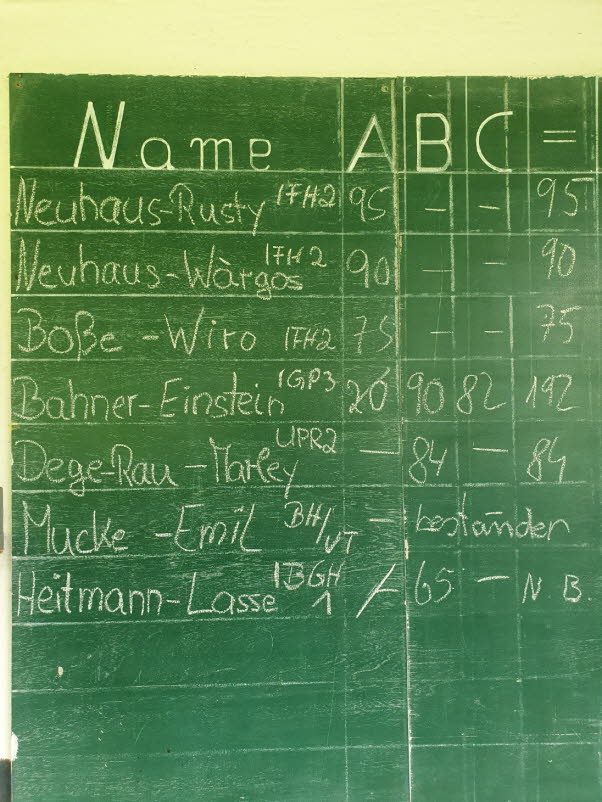 Name A B C =
Neuhaus-Rusty IFH2 95 - - 95
Neuhaus-Wàrgos IFH2 90 - - 90
Boße - Wiro IFH2 75 - - 75
Bahner-Einstein IGP3 20 90 82 192
Dege-Rau - Marley UPR2 - 84 - 84
Mucke - Emil BH/VT - bestanden
Heitmann-Lasse IBGH 1 / 65 - N.B.